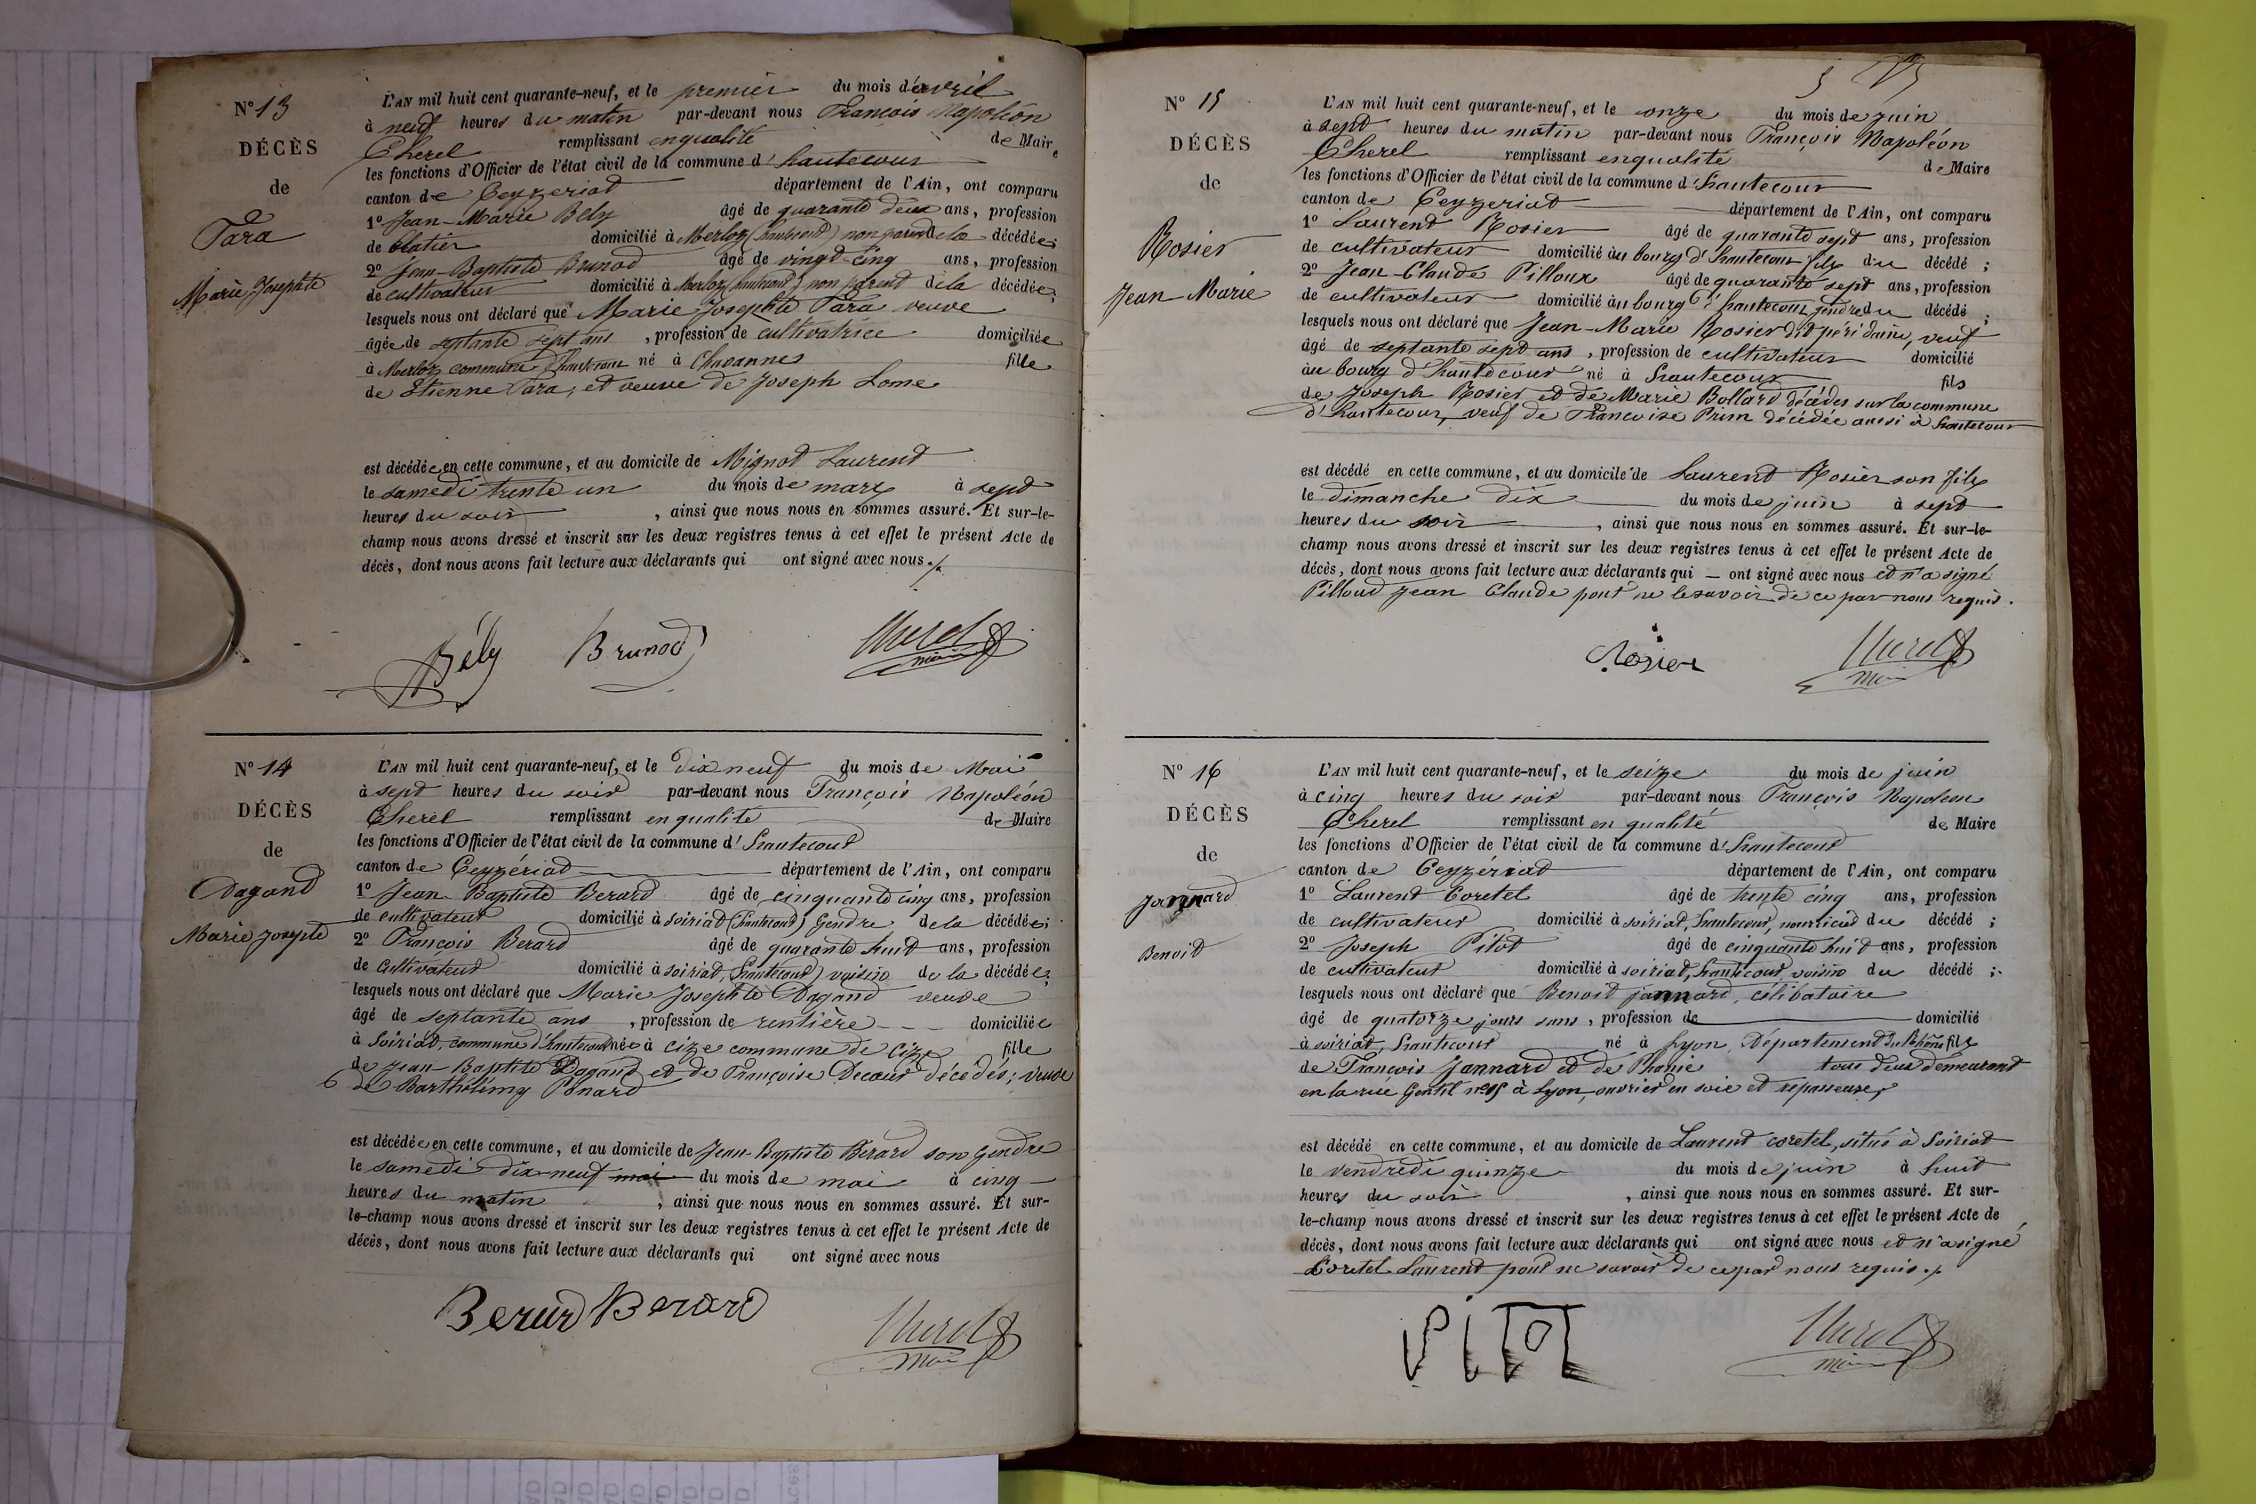 N° 13
DÉCÈS
de
Tara
Marie Josephte
L'AN mil huit cent quarante-neuf, et le premier du mois d'avril
à neuf heures du matin par-devant nous François Napoléon
Cherel remplissant en qualité de Maire
les fonctions d'Officier de l'état civil de la commune d'hautecour
canton de Ceyzeriat département de l'Ain, ont comparu
1° Jean-Marie Bely âgé de quarante deux ans, profession
de domicilié à Merloz (hautecour) non parent de la décédée;
2° Jean-Baptiste Brunod âgé de vingt-cinq ans, profession
de cultivateur domicilié à Merloz (hautecour) non parent de la décédée;
lesquels nous ont déclaré que Marie Josephte Tara veuve
âgée de septante sept ans, profession de cultivatrice domiciliée
à Merloz commune d'hautecour né à Chavannes fille
de Etienne Tara, et veuve de Joseph Lome
est décédée en cette commune, et au domicile de Mignot Laurent
le samedi trente un du mois de mars à sept
heures du soir, ainsi que nous nous en sommes assuré. Et sur-le-
champ nous avons dressé et inscrit sur les deux registres tenus à cet effet le présent Acte de
décès, dont nous avons fait lecture aux déclarants qui ont signé avec nous./.
Bély Brunod Cherel maire
N° 14
DÉCÈS
de
Dagand
Marie Josephte
L'AN mil huit cent quarante-neuf, et le dix neuf du mois de Mai
à sept heures du soir par-devant nous François Napoléon
Cherel remplissant en qualité de Maire
les fonctions d'Officier de l'état civil de la commune d'hautecour
canton de Ceyzériat département de l'Ain, ont comparu
1° Jean Baptiste Berard âgé de cinquante cinq ans, profession
de cultivateur domicilié à soiriat (hautecour) Gendre de la décédée;
2° François Berard âgé de quarante huit ans, profession
de cultivateur domicilié à soiriat, (hautecour) voisin de la décédée;
lesquels nous ont déclaré que Marie Josephte Dagand veuve
âgé de septante ans, profession de rentière domiciliée
à Soiriat, commune d'hautecour née à cize commune de Cize fille
de Jean-Baptiste Dagand et de Françoise Decour décédés; veuve
de Barthélimy Ponard
est décédée en cette commune, et au domicile de Jean-Baptiste Berard son gendre
le samedi dix-neuf mai du mois de mai à cinq
heures du matin, ainsi que nous nous en sommes assuré. Et sur-
le-champ nous avons dressé et inscrit sur les deux registres tenus à cet effet le présent Acte de
décès, dont nous avons fait lecture aux déclarants qui ont signé avec nous
Berard Berard Cherel maire
N° 15
DÉCÈS
de
Rosier
Jean-Marie
L'AN mil huit cent quarante-neuf, et le onze du mois de juin
à sept heures du matin par-devant nous François Napoléon
Cherel remplissant en qualité de Maire
les fonctions d'Officier de l'état civil de la commune d'hautecour
canton de Ceyzeriat département de l'Ain, ont comparu
1° Laurent Rosier âgé de quarante sept ans, profession
de cultivateur domicilié au bourg d'hautecour fils du décédé;
2° Jean-Claude Pilloux âgé de quarante sept ans, profession
de cultivateur domicilié au bourg d'hautecour, gendre du décédé;
lesquels nous ont déclaré que Jean-Marie Rosier dit péri daine, veuf
âgé de septante sept ans, profession de cultivateur domicilié
au bourg d'hautecour né à hautecour fils
de Joseph Rosier et de Marie Bollard décédés sur la commune
d'hautecour, veuf de Françoise Prim décédée aussi à hautecour
est décédé en cette commune, et au domicile de Laurent Rosier son fils
le dimanche dix du mois de juin à sept
heures du soir, ainsi que nous nous en sommes assuré. Et sur-le-
champ nous avons dressé et inscrit sur les deux registres tenus à cet effet le présent Acte de
décès, dont nous avons fait lecture aux déclarants qui — ont signé avec nous et n'a signé
Pilloud Jean Claude pour ne le savoir de ce par nous requis.
Rosier Cherel maire
N° 16
DÉCÈS
de
Jannard
Benoit
L'AN mil huit cent quarante-neuf, et le seize du mois de juin
à cinq heures du soir par-devant nous François Napoleon
Cherel remplissant en qualité de Maire
les fonctions d'Officier de l'état civil de la commune d'hautecour
canton de Ceyzériat département de l'Ain, ont comparu
1° Laurent Coretel âgé de trente cinq ans, profession
de cultivateur domicilié à soiriat, hautecour, nourricier du décédé;
2° Joseph Pitot âgé de cinquante huit ans, profession
de cultivateur domicilié à soiriat, hautecour voisin du décédé;
lesquels nous ont déclaré que Benoit jannard, célibataire
âgé de quatorze jours sans, profession de domicilié
à soiriat, hautecour né à Lyon, Département du Rhône fils
de François Jannard et de Phanie tous deux demeurant
en la rue Gentil n° 15 à Lyon, ouvrier en soie et repasseuse,
est décédé en cette commune, et au domicile de Laurent coretel, situé à Soiriat
le vendredi quinze du mois de juin à huit
heures du soir, ainsi que nous nous en sommes assuré. Et sur-
le-champ nous avons dressé et inscrit sur les deux registres tenus à cet effet le présent Acte de
décès, dont nous avons fait lecture aux déclarants qui ont signé avec nous et n'a signé
Coretel Laurent pour ne savoir de ce par nous requis./.
PITOT Cherel maire